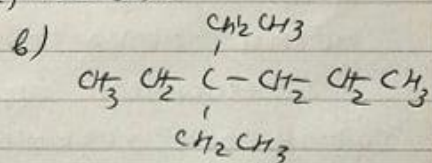 в)
CH2CH3
CH3 CH2 C - CH2 - CH2 - CH3
CH2CH3